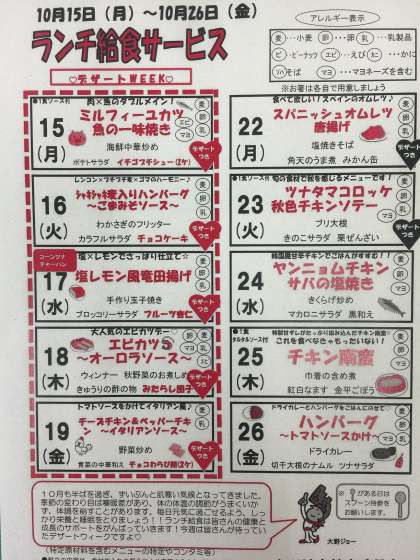 10月15日（月）～10月26日（金）
ランチ給食サービス
♡デザートWEEK♡
アレルギー表示
麦…小麦 卵…卵 乳…乳製品
ピ…ピーナッツ エビ…えび カニ…かに
ソバ…そば マヨ…マヨネーズを含む
※お箸は各自で用意しましょう
●1食ソース付
肉×魚のダブルメイン！
15
(月)
ミルフィーユカツ
魚の一味焼き
海鮮中華炒め
ポテトサラダ イチゴプチシュー(2ケ)
デザートつき
レンコン×プチプチ麦×ゴマのハーモニー♪
16
(火)
シャキシャキ麦入りハンバーグ
～ごまみそソース～
わかさぎのフリッター
カラフルサラダ チョコケーキ
デザートつき
コーンツナチャーハン
塩×レモンでさっぱり仕立て☆
17
(水)
塩レモン風竜田揚げ
手作り玉子焼き
ブロッコリーサラダ フルーツ杏仁
デザートつき
大人気のエビカツデー
18
(木)
エビカツ
～オーロラソース～
ウィンナー 秋野菜のお煮しめ
きゅうりの酢の物 みたらし団子
デザートつき
トマトソースをかけてイタリアン風♪
19
(金)
チーズチキン&ペッパーチキン
～イタリアンソース～
野菜炒め
青菜の中華和え チョコわらび餅(2ケ)
デザートつき
食べて欲しい！スペインのオムレツ♪
22
(月)
スパニッシュオムレツ
唐揚げ
塩焼きそば
角天のうま煮 みかん缶
デザートつき
●1食ソース付
旬の食材で秋を感じるメニューです！
23
(火)
ツナタマコロッケ
秋色チキンソテー
ブリ大根
きのこサラダ 栗ぜんざい
デザートつき
韓国風甘辛チキンでごはんがすすむ！！
24
(水)
ヤンニョムチキン
サバの塩焼き
きくらげ炒め
マカロニサラダ 黒和え
●1食タルタルソース付
特製甘ダレがたっぷり染み込んだチキン南蛮
これを食べなきゃもったいない！
25
(木)
チキン南蛮
巾着の含め煮
紅白なます 金平ごぼう
ドライカレーとハンバーグをごはんにのせて、
26
(金)
ハンバーグ
～トマトソースかけ～
ドライカレー
切干大根のナムル ツナサラダ
１０月も半ばを過ぎ、ずいぶんと肌寒い気候となってきました。
季節の変わり目は寒暖差があり、体の体温の調節がうまくいかず、体調を崩すことがあります。
毎日元気に過ごせるよう、しっかり栄養と睡眠をとりましょう！！ランチ給食は皆さんの健康と成長のサポートをがんばっていきます！今週は皆さんが待っていたデザートウィークですよ♡
がある日はスプーン持参をお願いします。
大新ジョー